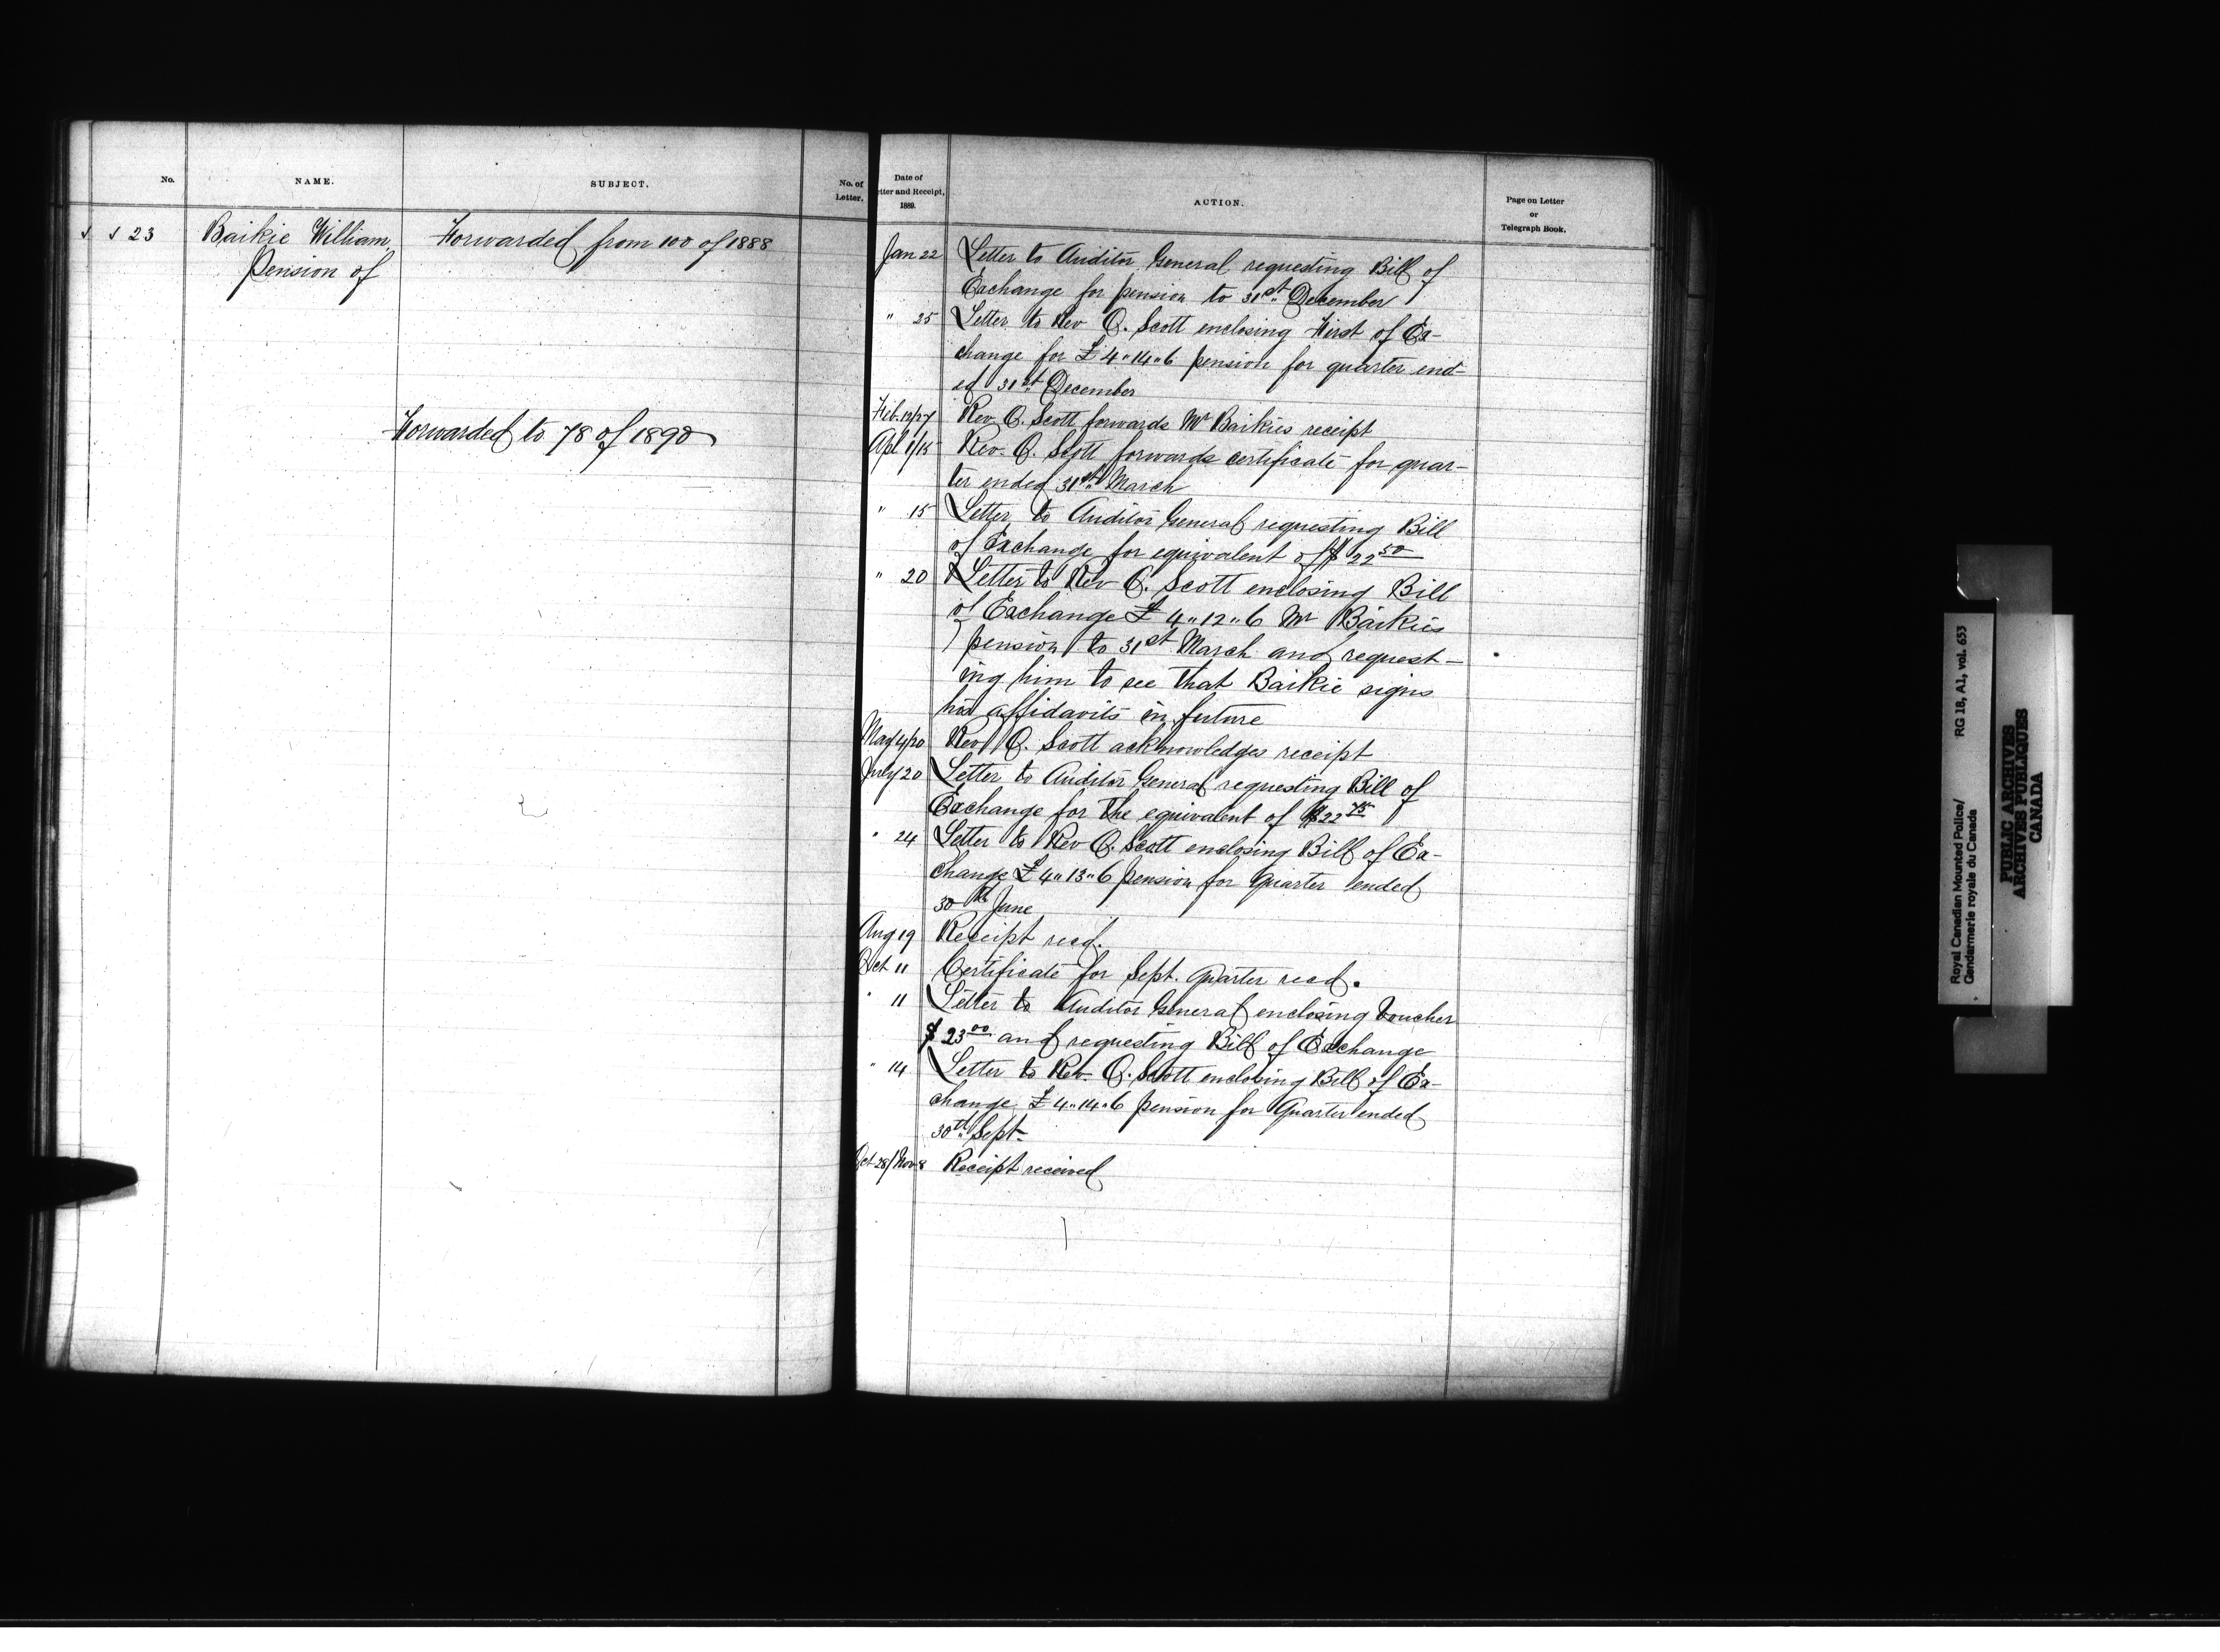 No.
NAME.
SUBJECT.
No. of
Letter.
✓ ✓ 23
Baikie William,
Pension of
Forwarded from 100 of 1888
Forwarded to 78 of 1890
Date of
tter and Receipt,
1889.
ACTION.
Page on Letter
or
Telegraph Book.
Jan 22 Letter to Auditor General requesting Bill of
Exchange for pension to 31st December
" 25 Letter to Rev O. Scott enclosing First of Ex-
change for £4"14"6 pension for quarter end-
ed 31st December
Feb. 12/27 Rev. O. Scott forwards Mr Baikies receipt
Apl 1/15 Rev. O. Scott forwards certificate for quar-
ter ended 31st March
" 15 Letter to Auditor General requesting Bill
of Exchange for equivalent of $22 50
" 20 Letter to Rev O. Scott enclosing Bill
of Exchange £4"12"6 Mr Baikies
pension to 31st March and request-
ing him to see that Baikie signs
his affidavits in future
May 4/20 Rev O. Scott acknowledges receipt
July 20 Letter to Auditor General requesting Bill of
Exchange for the equivalent of $22 75
" 24 Letter to Rev O. Scott enclosing Bill of Ex-
change £4"13"6 pension for quarter ended
30th June
Aug 19 Receipt recd.
Oct 11 Certificate for Sept. Quarter recd.
" 11 Letter to Auditor General enclosing Voucher
$23 00 and requesting Bill of Exchange
" 14 Letter to Rev. O. Scott enclosing Bill of Ex-
change £4"14"6 pension for Quarter ended
30th Sept.
Oct 28/Nov 8 Receipt received
Royal Canadian Mounted Police/ RG 18, A1, vol. 653
Gendarmerie royale du Canada
PUBLIC ARCHIVES
ARCHIVES PUBLIQUES
CANADA